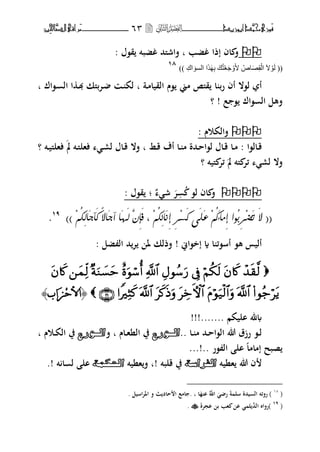 ٦٣
وكان إذا غضب ، واشتد غضبه يقول :
(( لَوْلا الْقِصَاصُ لأَوْجَعْتُكَ بِهَذَا السِوَاكِ )) ١٨
أي لولا أن ربنا يقتص مني يوم القيامة ، لكنت ضربتك بهذا السواك ،
وهل السواك يوجع ! ؟
والكلام :
قالوا : ما قال لواحدة منا أف قط ، ولا قال لشيء فعلته لِمَ فعلتيه ؟
ولا لشيء تركته لِمَ تركتيه ؟
وكان لو كُسِرَ شيءٌ ؛ يقول :
(( لَا تَضْرِبُوا إِمَاءَكُمْ عَلَى كَسْرِ إِنَائِكُمْ ، فَإِنَّ لَهَا آجَالاً كَآجَالِكُمْ )) ١٩.
أليس هو أسوتنا يا إخواني ! وذلك لمن يريد الفضل :
﴿ لَّقَدْ كَانَ لَكُمْ فِي رَسُولِ ٱللَّهِ أُسْوَةٌ حَسَنَةٌ لِّمَن كَانَ
يَرْجُوا۟ ٱللَّهَ وَٱلْيَوْمَ ٱلْآخِرَ وَذَكَرَ ٱللَّهَ كَثِيرًا ﴾ ﴿الأحزاب﴾
بالله عليكم .......!!!
لو رزق الله الواحد منا .. في الطعام ، و في الكلام ،
يصبح إماماً على الفور ..!...
لأن الله يعطيه الفراسة في قلبه !، ويعطيه الحكمة على لسانه !.
( ١٨ ) روته السيدة سلمة رضي اللهُ عنها ، .جامع الأحاديث و المراسيل .
( ١٩ )رواه الدَّيلمي عن كعب بن عجرة .